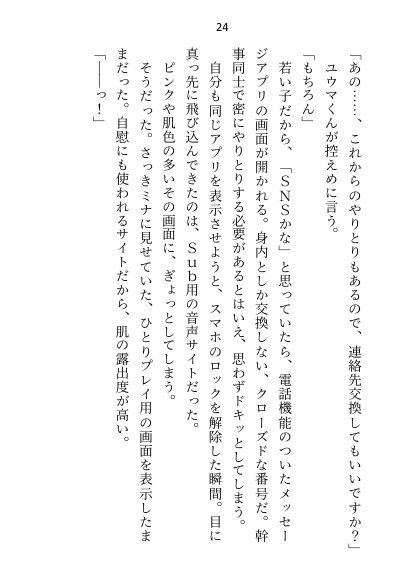 24
「あの……、これからのやりとりもあるので、連絡先交換してもいいですか？」
ユウマくんが控えめに言う。
「もちろん」
若い子だから、「ＳＮＳかな」と思っていたら、電話機能のついたメッセー
ジアプリの画面が開かれる。身内としか交換しない、クローズドな番号だ。幹
事同士で密にやりとりする必要があるとはいえ、思わずドキッとしてしまう。
自分も同じアプリを表示させようと、スマホのロックを解除した瞬間。目に
真っ先に飛び込んできたのは、Ｓｕｂ用の音声サイトだった。
ピンクや肌色の多いその画面に、ぎょっとしてしまう。
そうだった。さっきミナに見せていた、ひとりプレイ用の画面を表示したま
まだった。自慰にも使われるサイトだから、肌の露出度が高い。
「――っ！」